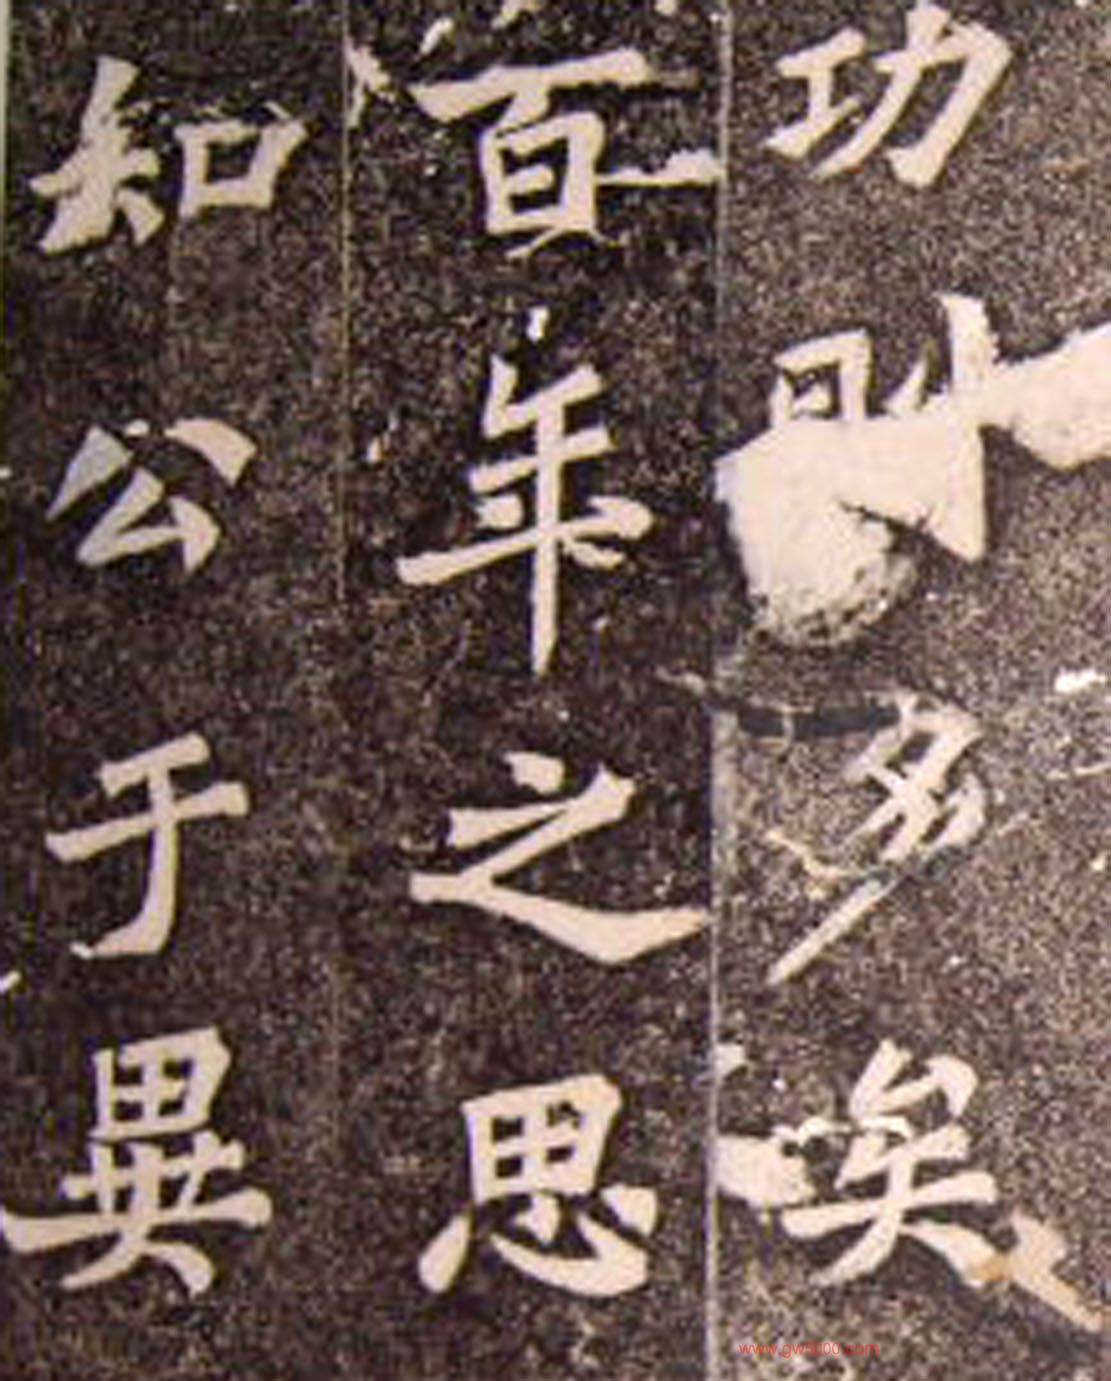 功則多矣
百年之思
知公于異
www.gw5000.com